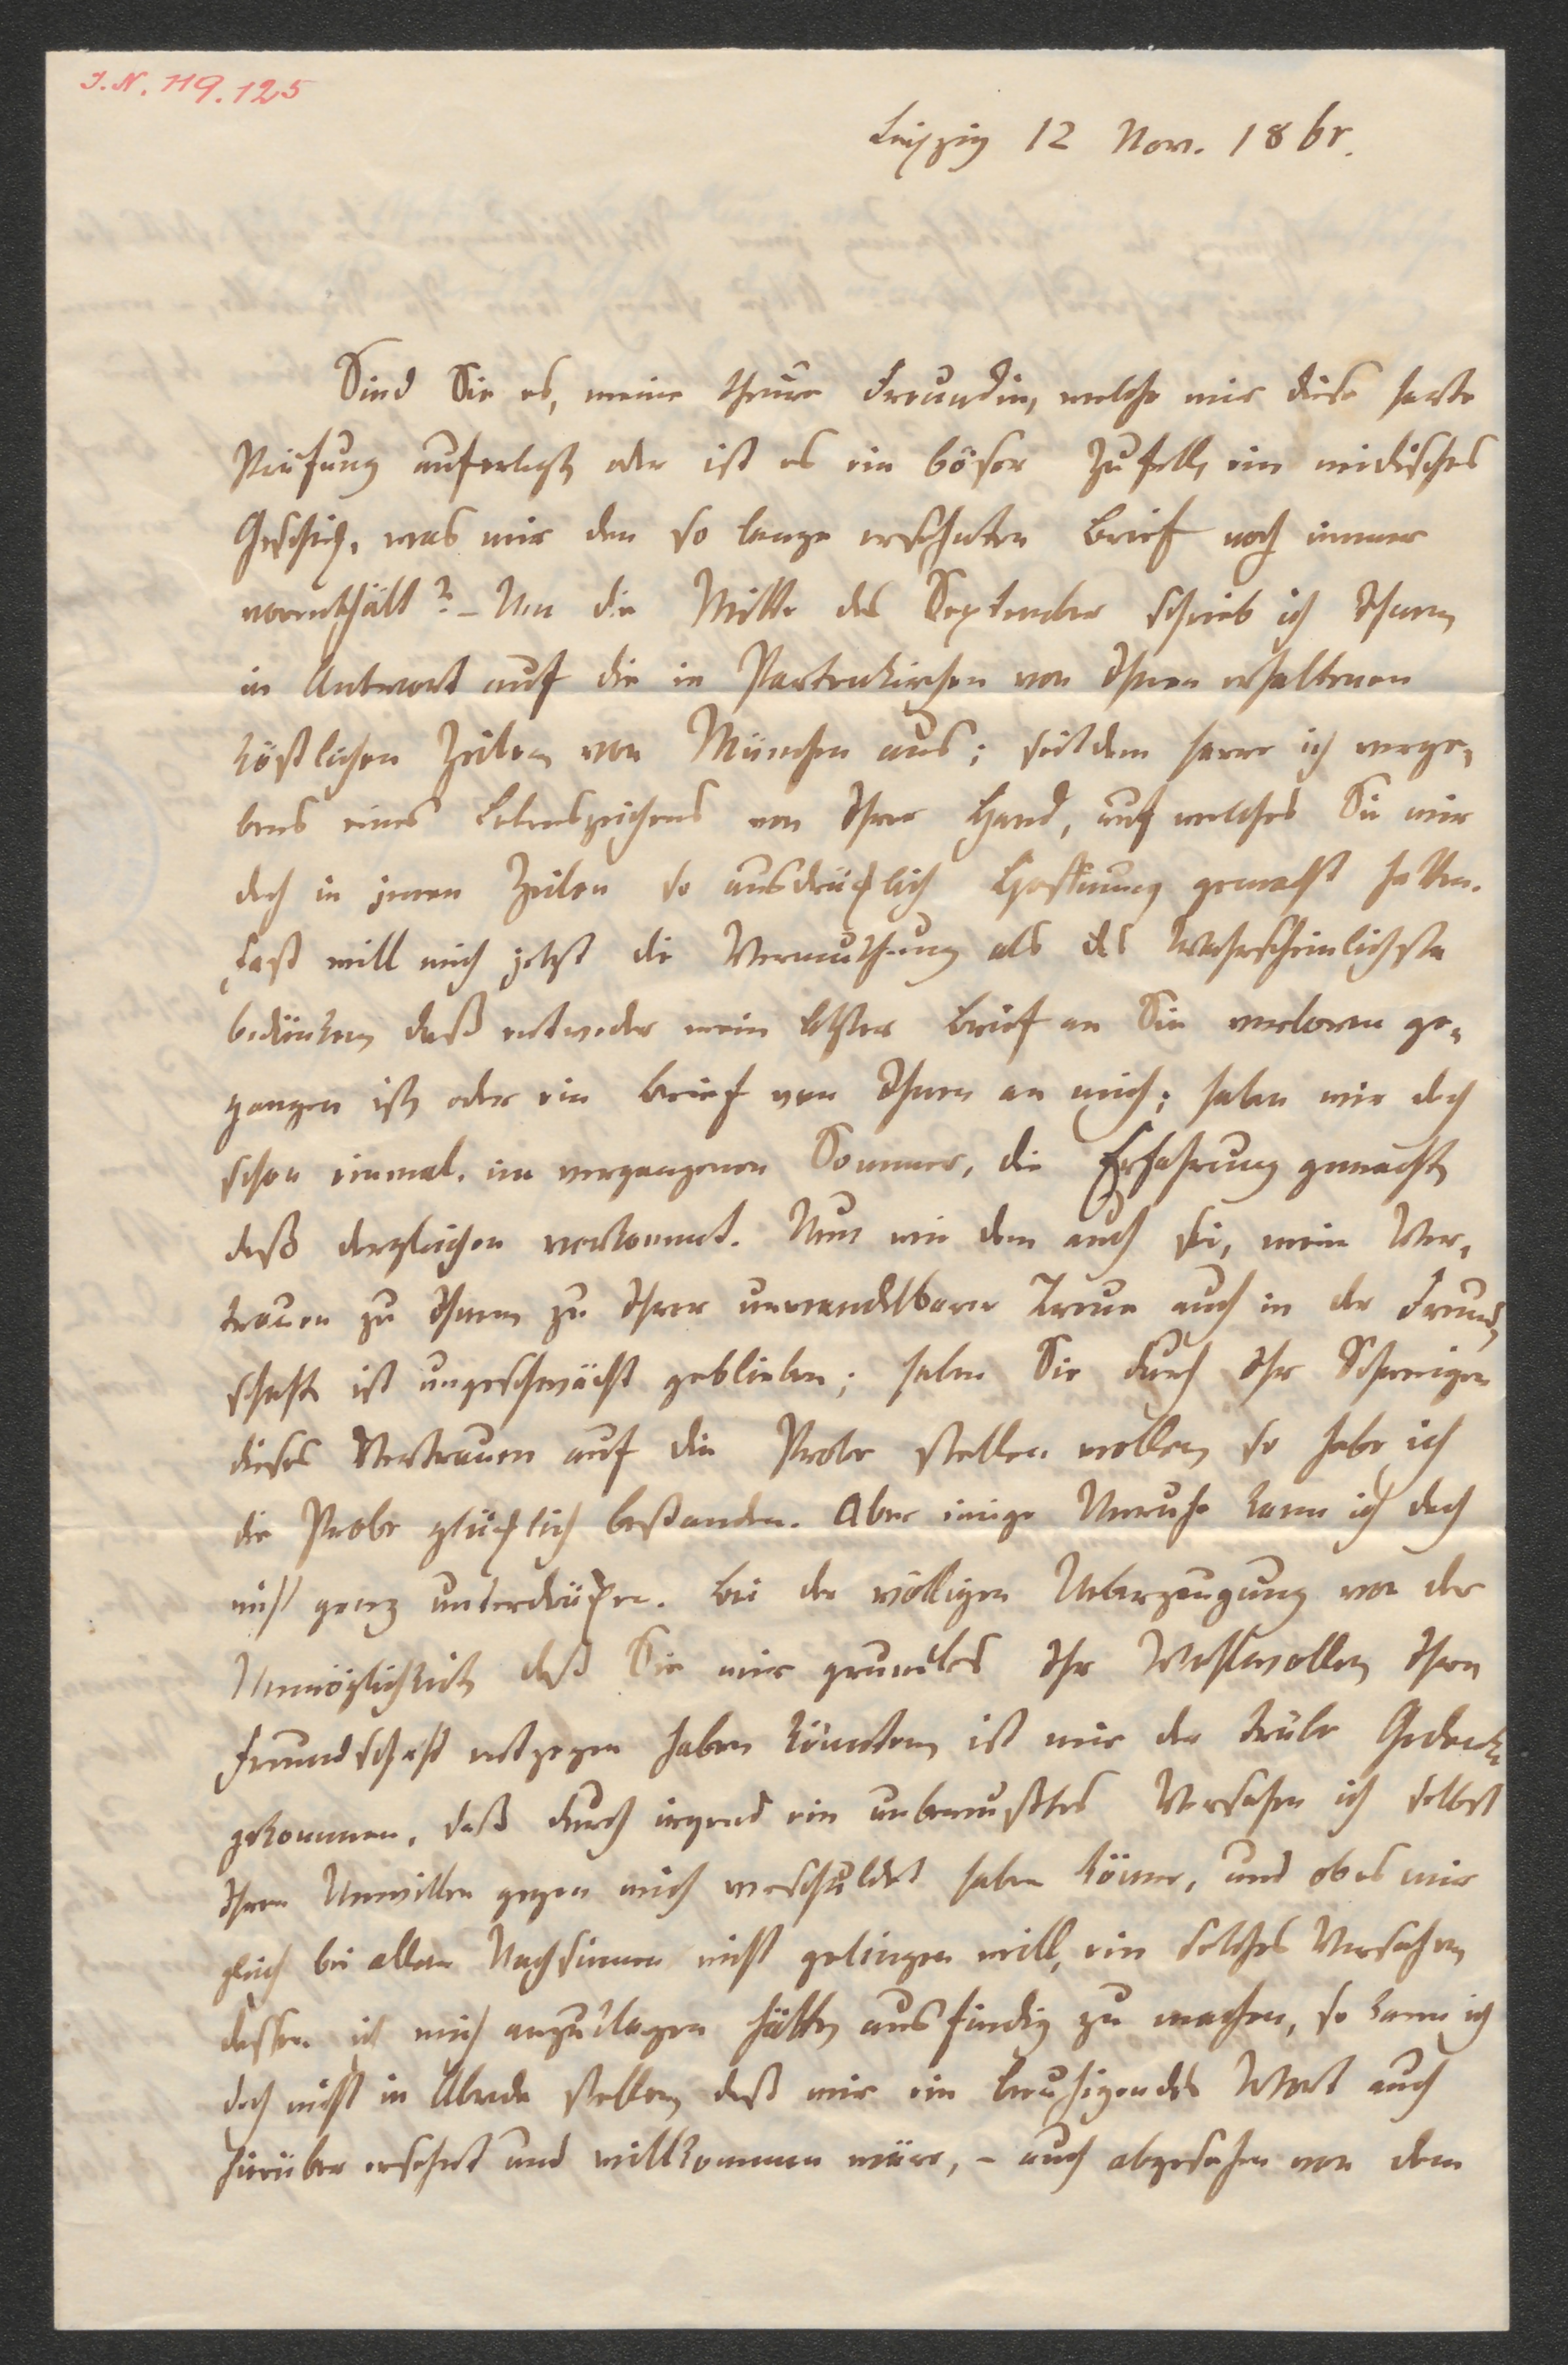 J.N. 119.125
Leipzig 12 Nov. 1861.
Sind Sie es, meine theure Freundin, welche mir diese harte
Prüfung auferlegt, oder ist es ein böser Zufall, ein neidisches
Geschick, was mir den so lange ersehnten Brief noch immer
vorenthält? – Um die Mitte des September schrieb ich Ihnen
in Antwort auf die in Partenkirchen von Ihnen erhaltenen
köstlichen Zeilen von München aus; seitdem harre ich verge-
bens eines Lebenszeichens von Ihrer Hand, auf welches Sie mir
doch in jenen Zeilen so ausdrücklich Hoffnung gemacht hatten.
Fast will mich jetzt die Vermuthung als das Wahrscheinlichste
bedünken, daß entweder mein letzter Brief an Sie verloren ge-
gangen ist, oder ein Brief von Ihnen an mich; haben wir doch
schon einmal, im vergangenen Sommer, die Erfahrung gemacht,
daß dergleichen vorkommt. Nun wie dem auch sei, mein Ver-
trauen zu Ihnen, zu Ihrer unwandelbaren Treue auch in der Freund-
schaft ist ungeschwächt geblieben; haben Sie durch Ihr Schweigen
dieses Vertrauen auf die Probe stellen wollen, so habe ich
die Probe glücklich bestanden. Aber einige Unruhe kann ich doch
nicht ganz unterdrücken. Bei der völligen Ueberzeugung von der
Unmöglichkeit, daß Sie mir grundlos Ihr Wohlwollen, Ihre
Freundschaft entzogen haben könnten, ist mir der trübe Gedanke
gekommen, daß durch irgend ein unbewußtes Versehen ich selbst
Ihren Unwillen gegen mich verschuldet haben könne, und ob es mir
gleich bei allem Nachsinnen nicht gelingen will, ein solches Versehen,
dessen ich mich anzuklagen hätte, ausfindig zu machen, so kann ich
doch nicht in Abrede stellen, daß mir ein beruhigendes Wort auch
hierüber ersehnt und willkommen wäre, – auch abgesehen von dem